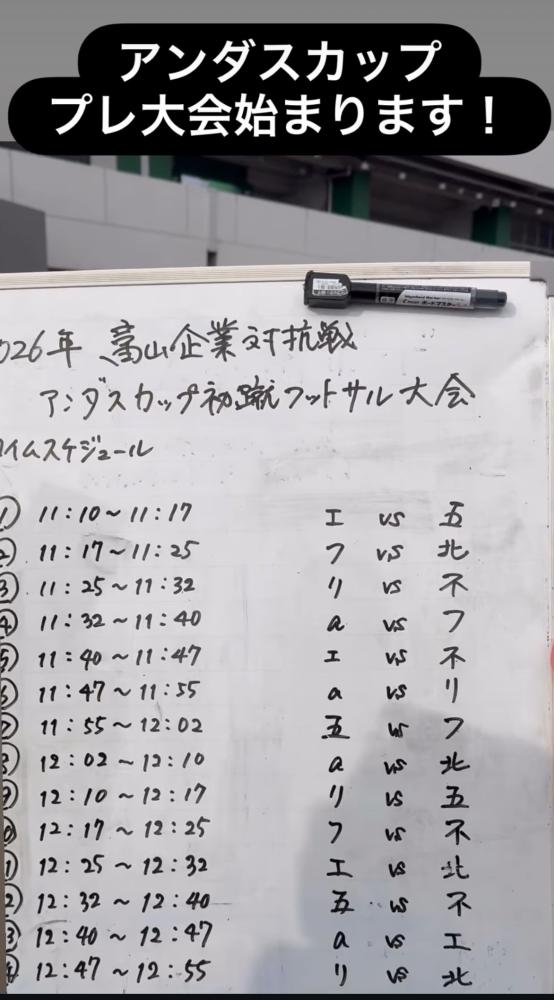 アンダスカップ
プレ大会始まります！
026年 高山企業対抗戦
アンダスカップ初蹴フットサル大会
タイムスケジュール
① 11:10～11:17 エ vs 五
② 11:17～11:25 フ vs 北
③ 11:25～11:32 リ vs 不
④ 11:32～11:40 a vs フ
⑤ 11:40～11:47 エ vs 不
⑥ 11:47～11:55 a vs リ
⑦ 11:55～12:02 五 vs フ
⑧ 12:02～12:10 a vs 北
⑨ 12:10～12:17 リ vs 五
⑩ 12:17～12:25 フ vs 不
⑪ 12:25～12:32 エ vs 北
⑫ 12:32～12:40 五 vs 不
⑬ 12:40～12:47 a vs エ
⑭ 12:47～12:55 リ vs 北